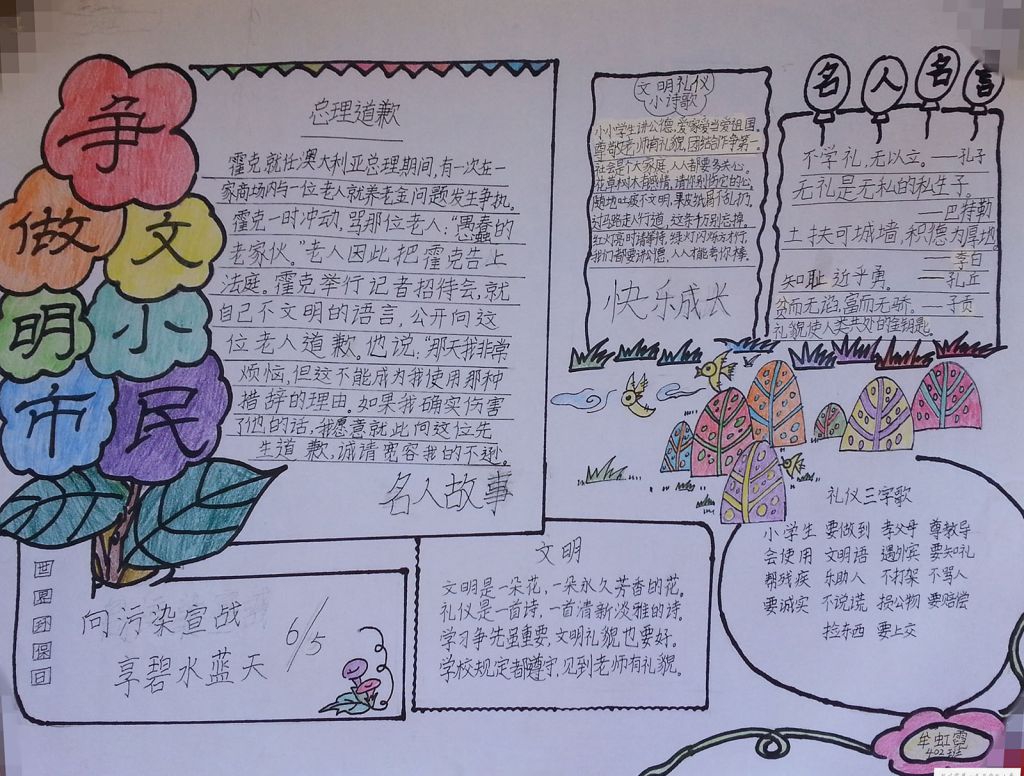 争
做文
明小
市民
总理道歉
霍克就任澳大利亚总理期间,有一次在一
家商场内与一位老人就养老金问题发生争执。
霍克一时冲动,骂那位老人:“愚蠢的
老家伙。”老人因此把霍克告上
法庭。霍克举行记者招待会,就
自己不文明的语言,公开向这
位老人道歉。他说:“那天我非常
烦恼,但这不能成为我使用那种
措辞的理由。如果我确实伤害
了他的话,我愿意就此向这位先
生道歉,诚请宽容我的不逊。
名人故事
文明礼仪
小诗歌
小小学生讲公德,爱家爱当爱祖国。
尊敬老师有礼貌,团结合作争第一。
社会是个大家庭,人人都要多关心。
花草树木有感情,请你别伤它的心。
随地吐痰不文明,果皮纸屑不乱扔。
过马路走人行道,这条千万别忘掉。
红灯亮时请等待,绿灯闪烁方才行,
我们都要讲公德,人人才能夸你棒。
快乐成长
名人名言
不学礼,无以立。——孔子
无礼是无私的私生子。
——巴特勒
土扶可城墙,积德为厚地。
——李白
知耻近乎勇。——孔丘
贫而无谄,富而无骄。——子贡
礼貌使人类共处的金钥匙
世
界
环
保
日
向污染宣战
享碧水蓝天
6/5
文明
文明是一朵花,一朵永久芳香的花。
礼仪是一首诗,一首清新淡雅的诗。
学习争先虽重要,文明礼貌也要好。
学校规定都遵守,见到老师有礼貌。
礼仪三字歌
小学生 要做到 孝父母 尊教导
会使用 文明语 遇外宾 要知礼
帮残疾 乐助人 不打架 不骂人
要诚实 不说谎 损公物 要赔偿
捡东西 要上交
牟虹霞
402班